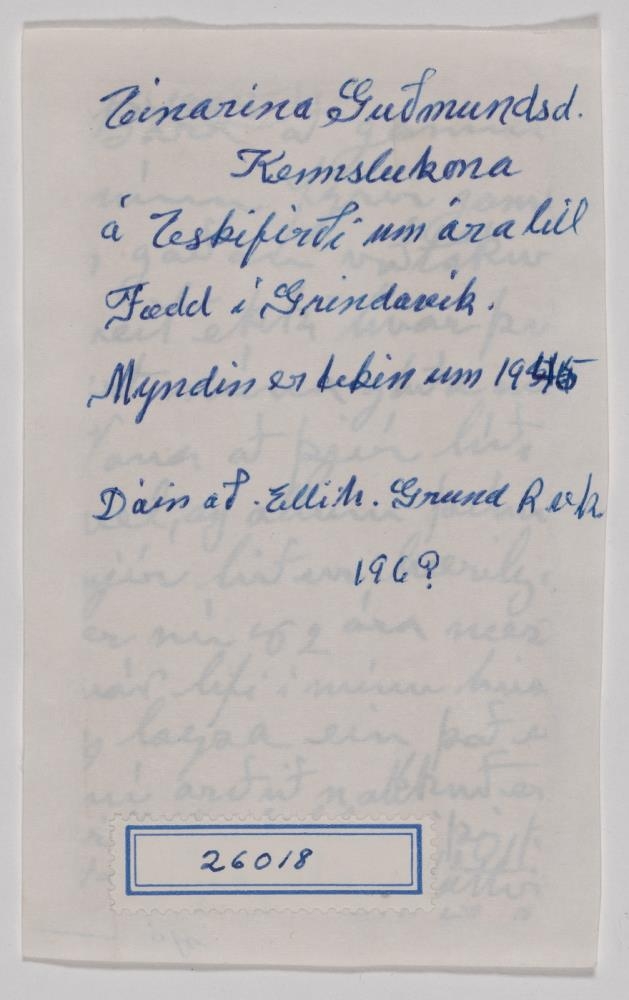 Einarína Guðmundsd.
Kennslukona
á Eskifirði um árabil
Fædd i Grindavík.
Myndin er tekin um 1945
Dáin að. Ellih. Grund Rvk
196?
26018